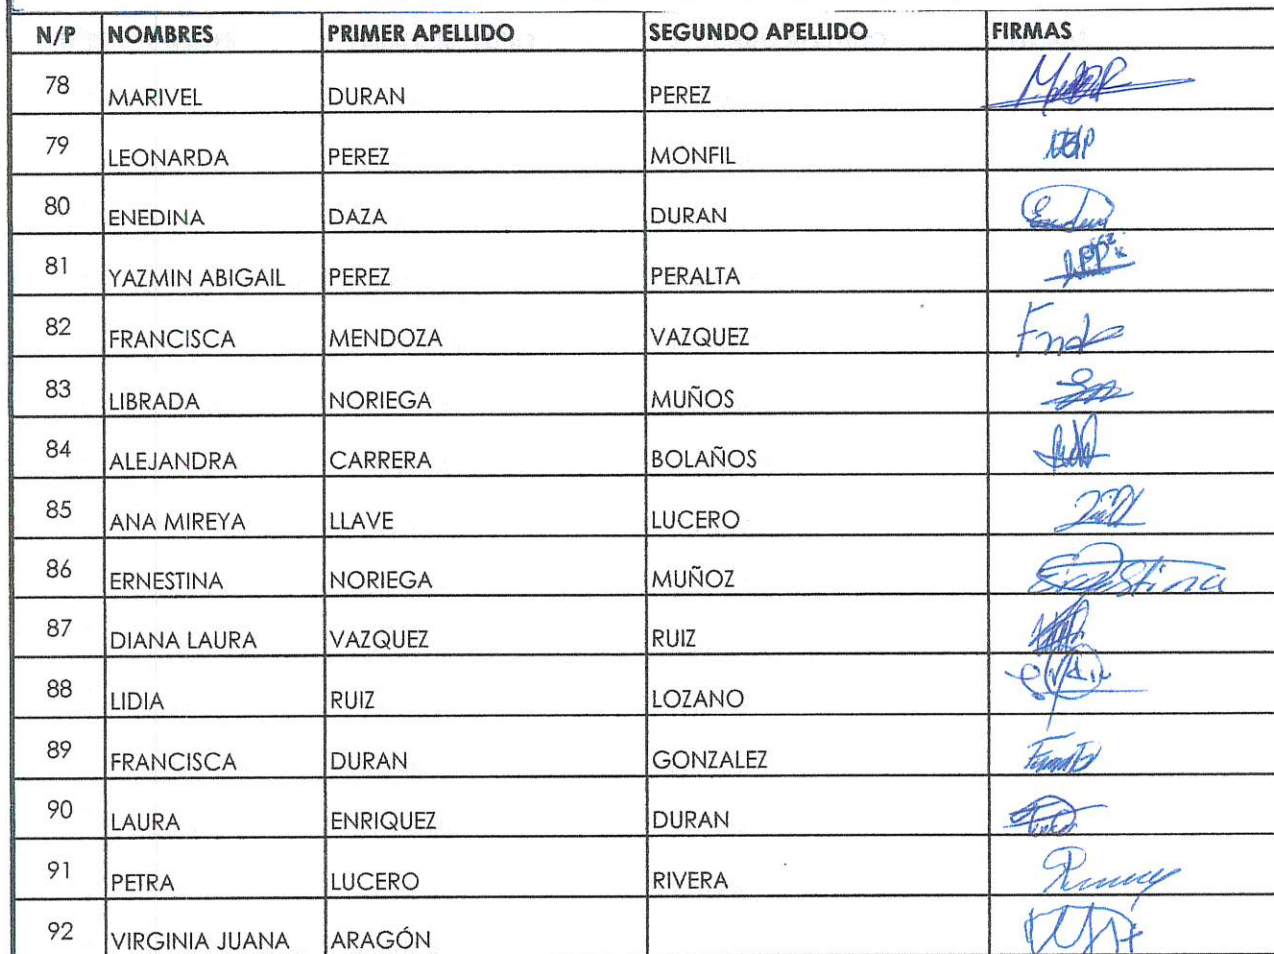 N/P NOMBRES PRIMER APELLIDO SEGUNDO APELLIDO FIRMAS
78 MARIVEL DURAN PEREZ
79 LEONARDA PEREZ MONFIL
80 ENEDINA DAZA DURAN
81 YAZMIN ABIGAIL PEREZ PERALTA
82 FRANCISCA MENDOZA VAZQUEZ
83 LIBRADA NORIEGA MUÑOS
84 ALEJANDRA CARRERA BOLAÑOS
85 ANA MIREYA LLAVE LUCERO
86 ERNESTINA NORIEGA MUÑOZ
87 DIANA LAURA VAZQUEZ RUIZ
88 LIDIA RUIZ LOZANO
89 FRANCISCA DURAN GONZALEZ
90 LAURA ENRIQUEZ DURAN
91 PETRA LUCERO RIVERA
92 VIRGINIA JUANA ARAGÓN